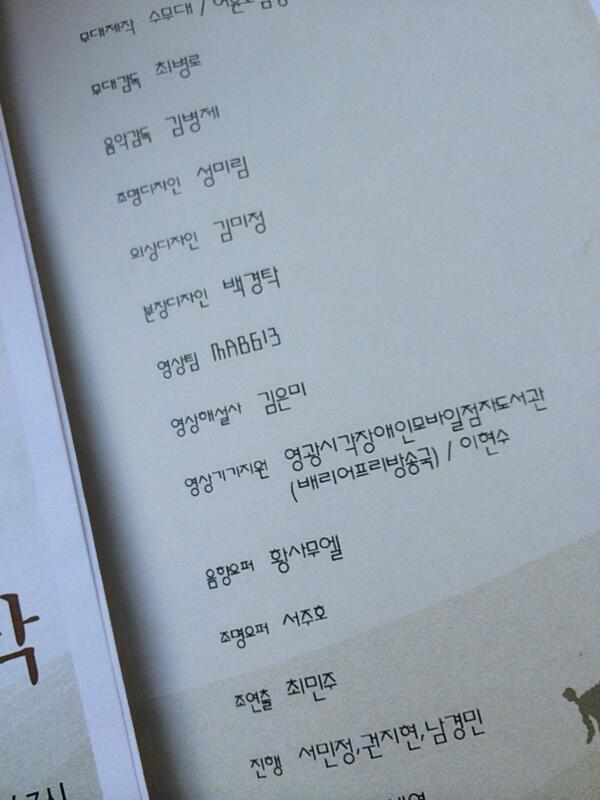 무대제작 수무대 /
무대감독 최병로
음악감독 김병제
조명디자인 성미림
의상디자인 김미정
분장디자인 백경탁
영상팀 MAB613
영상해설사 김은미
영상기기지원 영광시각장애인모바일점자도서관
(배리어프리방송국) / 이현수
음향오퍼 황사무엘
조명오퍼 서주호
조연출 최민주
진행 서민정,권지현,남경민